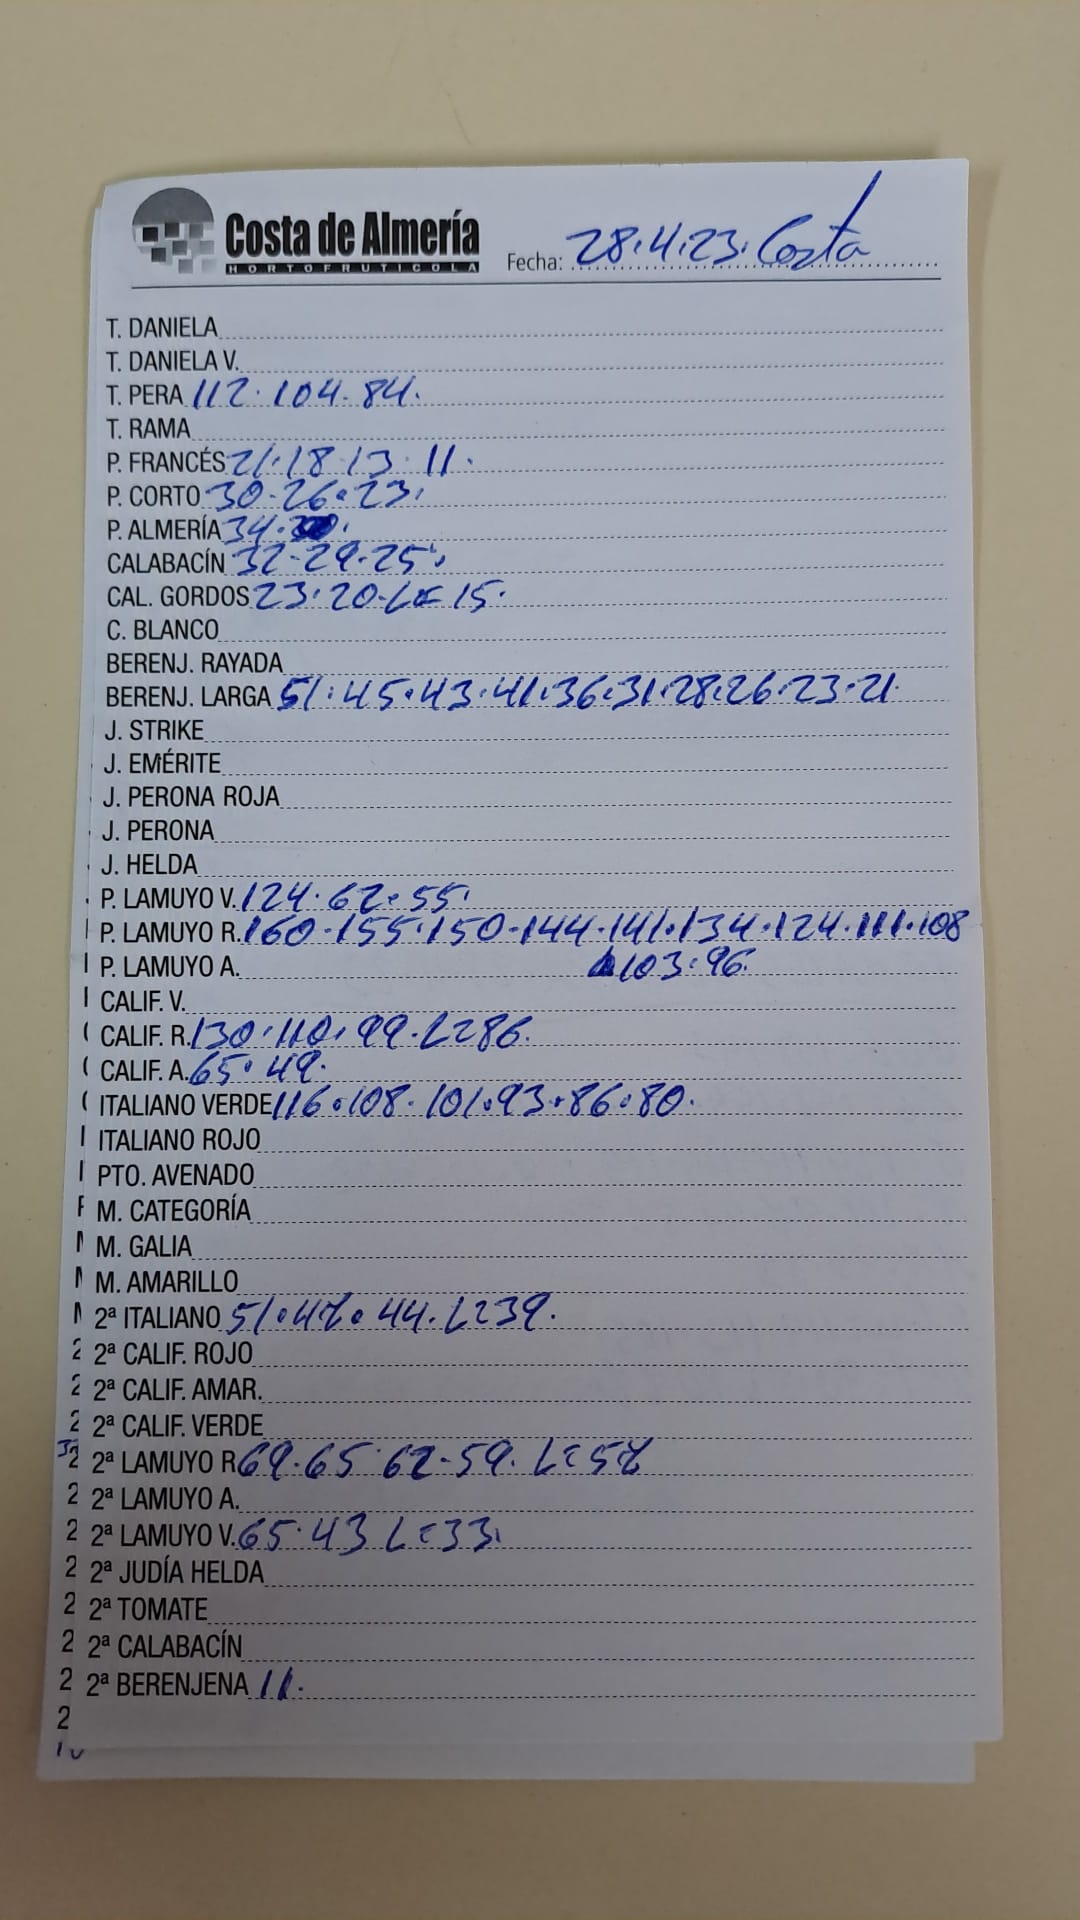 Costa de Almería
HORTOFRUTICOLA
Fecha: 28.4.23. Costa
T. DANIELA
T. DANIELA V.
T. PERA 112. 104. 84.
T. RAMA
P. FRANCÉS 21. 18. 13. 11.
P. CORTO 30. 26. 23.
P. ALMERÍA 34.
CALABACÍN 32. 29. 25.
CAL. GORDOS 23. 20. L= 15.
C. BLANCO
BERENJ. RAYADA
BERENJ. LARGA 51. 45. 43. 41. 36. 31. 28. 26. 23. 21.
J. STRIKE
J. EMÉRITE
J. PERONA ROJA
J. PERONA
J. HELDA
P. LAMUYO V. 124. 62. 55.
P. LAMUYO R. 160. 155. 150. 144. 141. 134. 124. 111. 108
P. LAMUYO A. 103. 96.
CALIF. V.
CALIF. R. 130. 110. 99. L=86.
CALIF. A. 65. 49.
ITALIANO VERDE 116. 108. 101. 93. 86. 80.
ITALIANO ROJO
PTO. AVENADO
M. CATEGORÍA
M. GALIA
M. AMARILLO
2ª ITALIANO 51. 47. 44. L=39.
2ª CALIF. ROJO
2ª CALIF. AMAR.
2ª CALIF. VERDE
2ª LAMUYO R 69. 65. 62. 59. L=57
2ª LAMUYO A.
2ª LAMUYO V. 65. 43 L=33.
2ª JUDÍA HELDA
2ª TOMATE
2ª CALABACÍN
2ª BERENJENA 11.